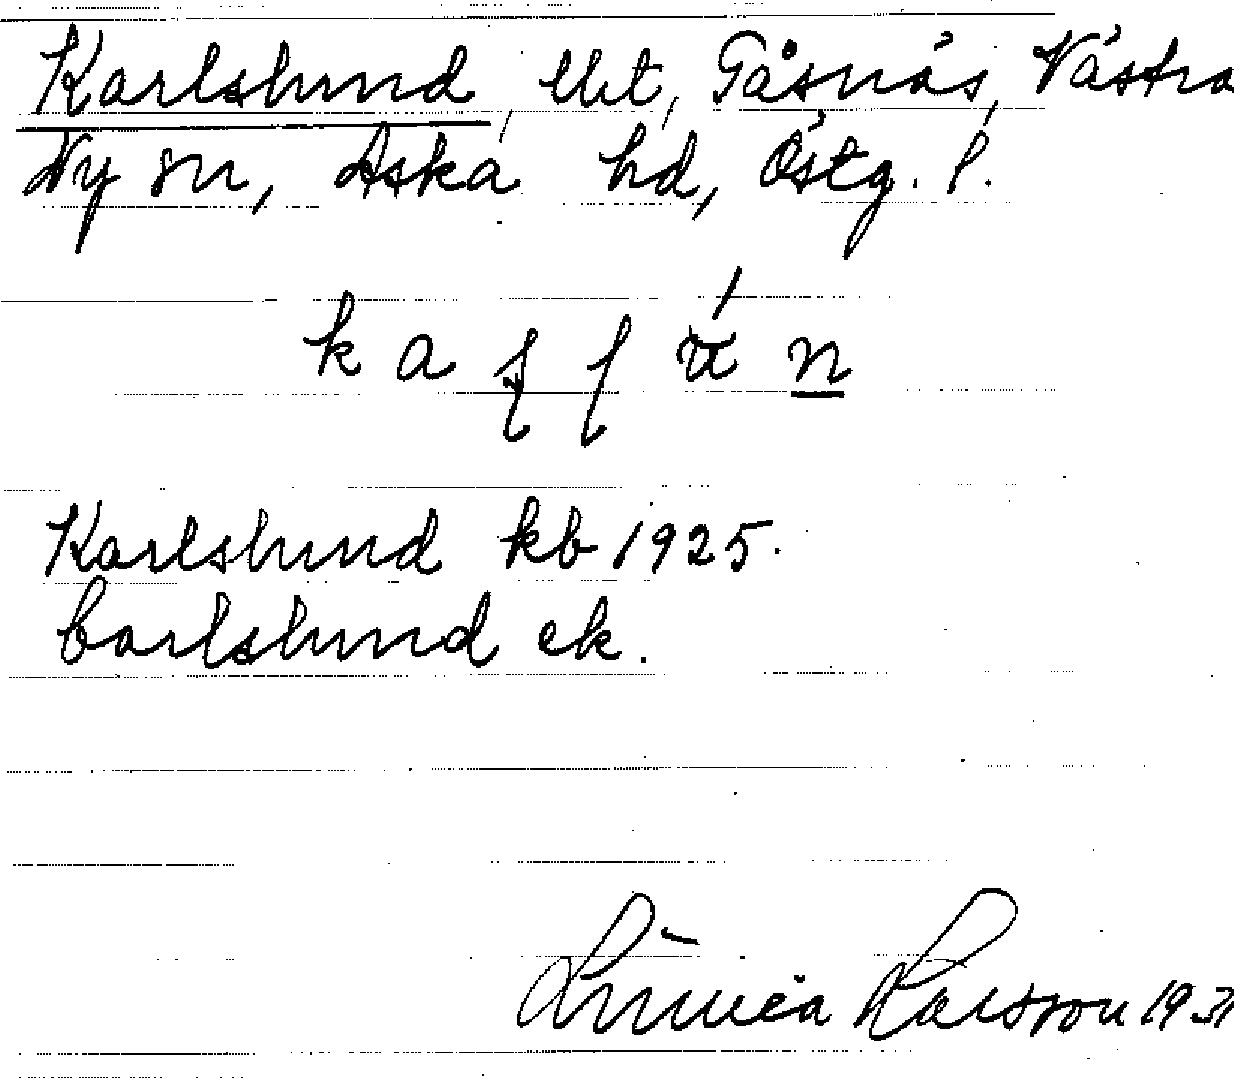 Karlslund, lht, Gåsnäs, Västra
Ny sn, Aska hd, Östg. l.
Karlslund kb 1925.
Carlslund ek.
Linnéa Larsson 193